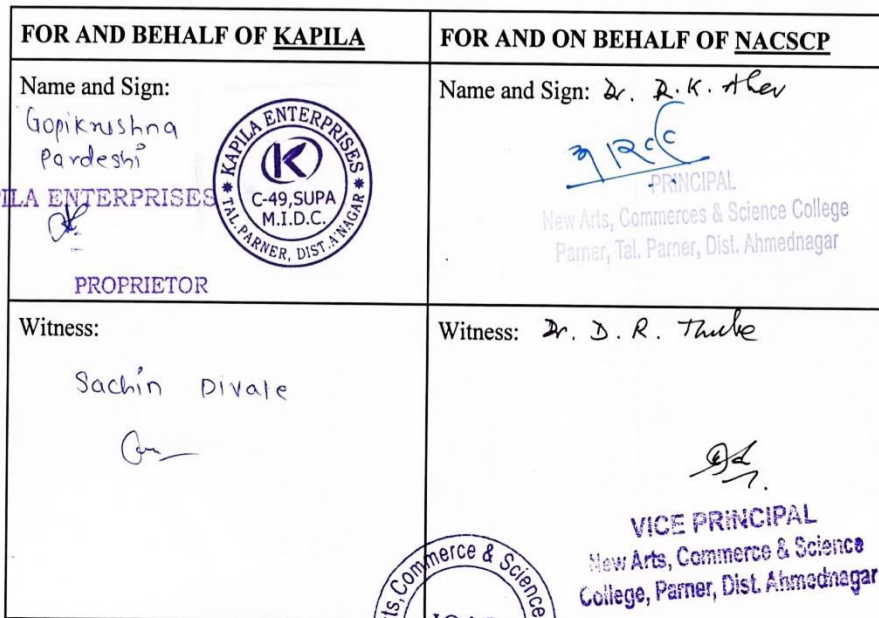 FOR AND BEHALF OF KAPILA
FOR AND ON BEHALF OF NACSCP
Name and Sign:
Gopikrushna
Pardeshi
ILA ENTERPRISES
PROPRIETOR
KAPILA ENTERPRISES
K
C-49,SUPA
M.I.D.C.
TAL.PARNER, DIST.A'NAGAR
Name and Sign: Dr. R. K. Aher
PRINCIPAL
New Arts, Commerces & Science College
Parner, Tal. Parner, Dist. Ahmednagar
Witness:
Sachin Divate
Witness: Dr. D. R. Thube
VICE PRINCIPAL
New Arts, Commerce & Science
College, Parner, Dist. Ahmednagar
ts, Commerce & Science